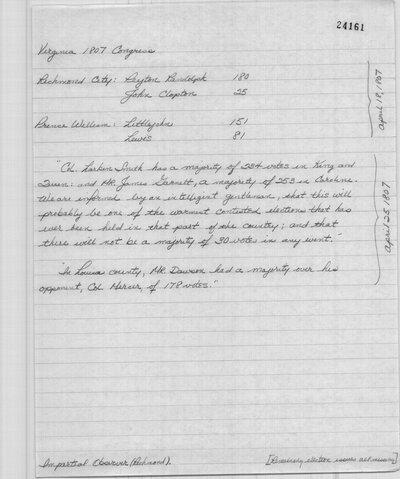 24161
Virginia 1807 Congress
Richmond City: Peyton Randolph 180
John Clopton 25
Prince William: Littlejohn 151
Lewis 81
April 18, 1807
"Col. Larkin Smith has a majority of 254 votes in King and
Queen: and Mr. James Garnett, a majority of 253 in Caroline.
We are informed by an intelligent gentleman, that this will
probably be one of the warmest contested elections that has
ever been held in that part of the country; and that
there will not be a majority of 30 votes in any event."
"In Louisa county, Mr. Dawson had a majority over his
opponent, Col. Mercer, of 178 votes."
April 25, 1807
Impartial Observer (Richmond).
[Remaining election issues all missing]